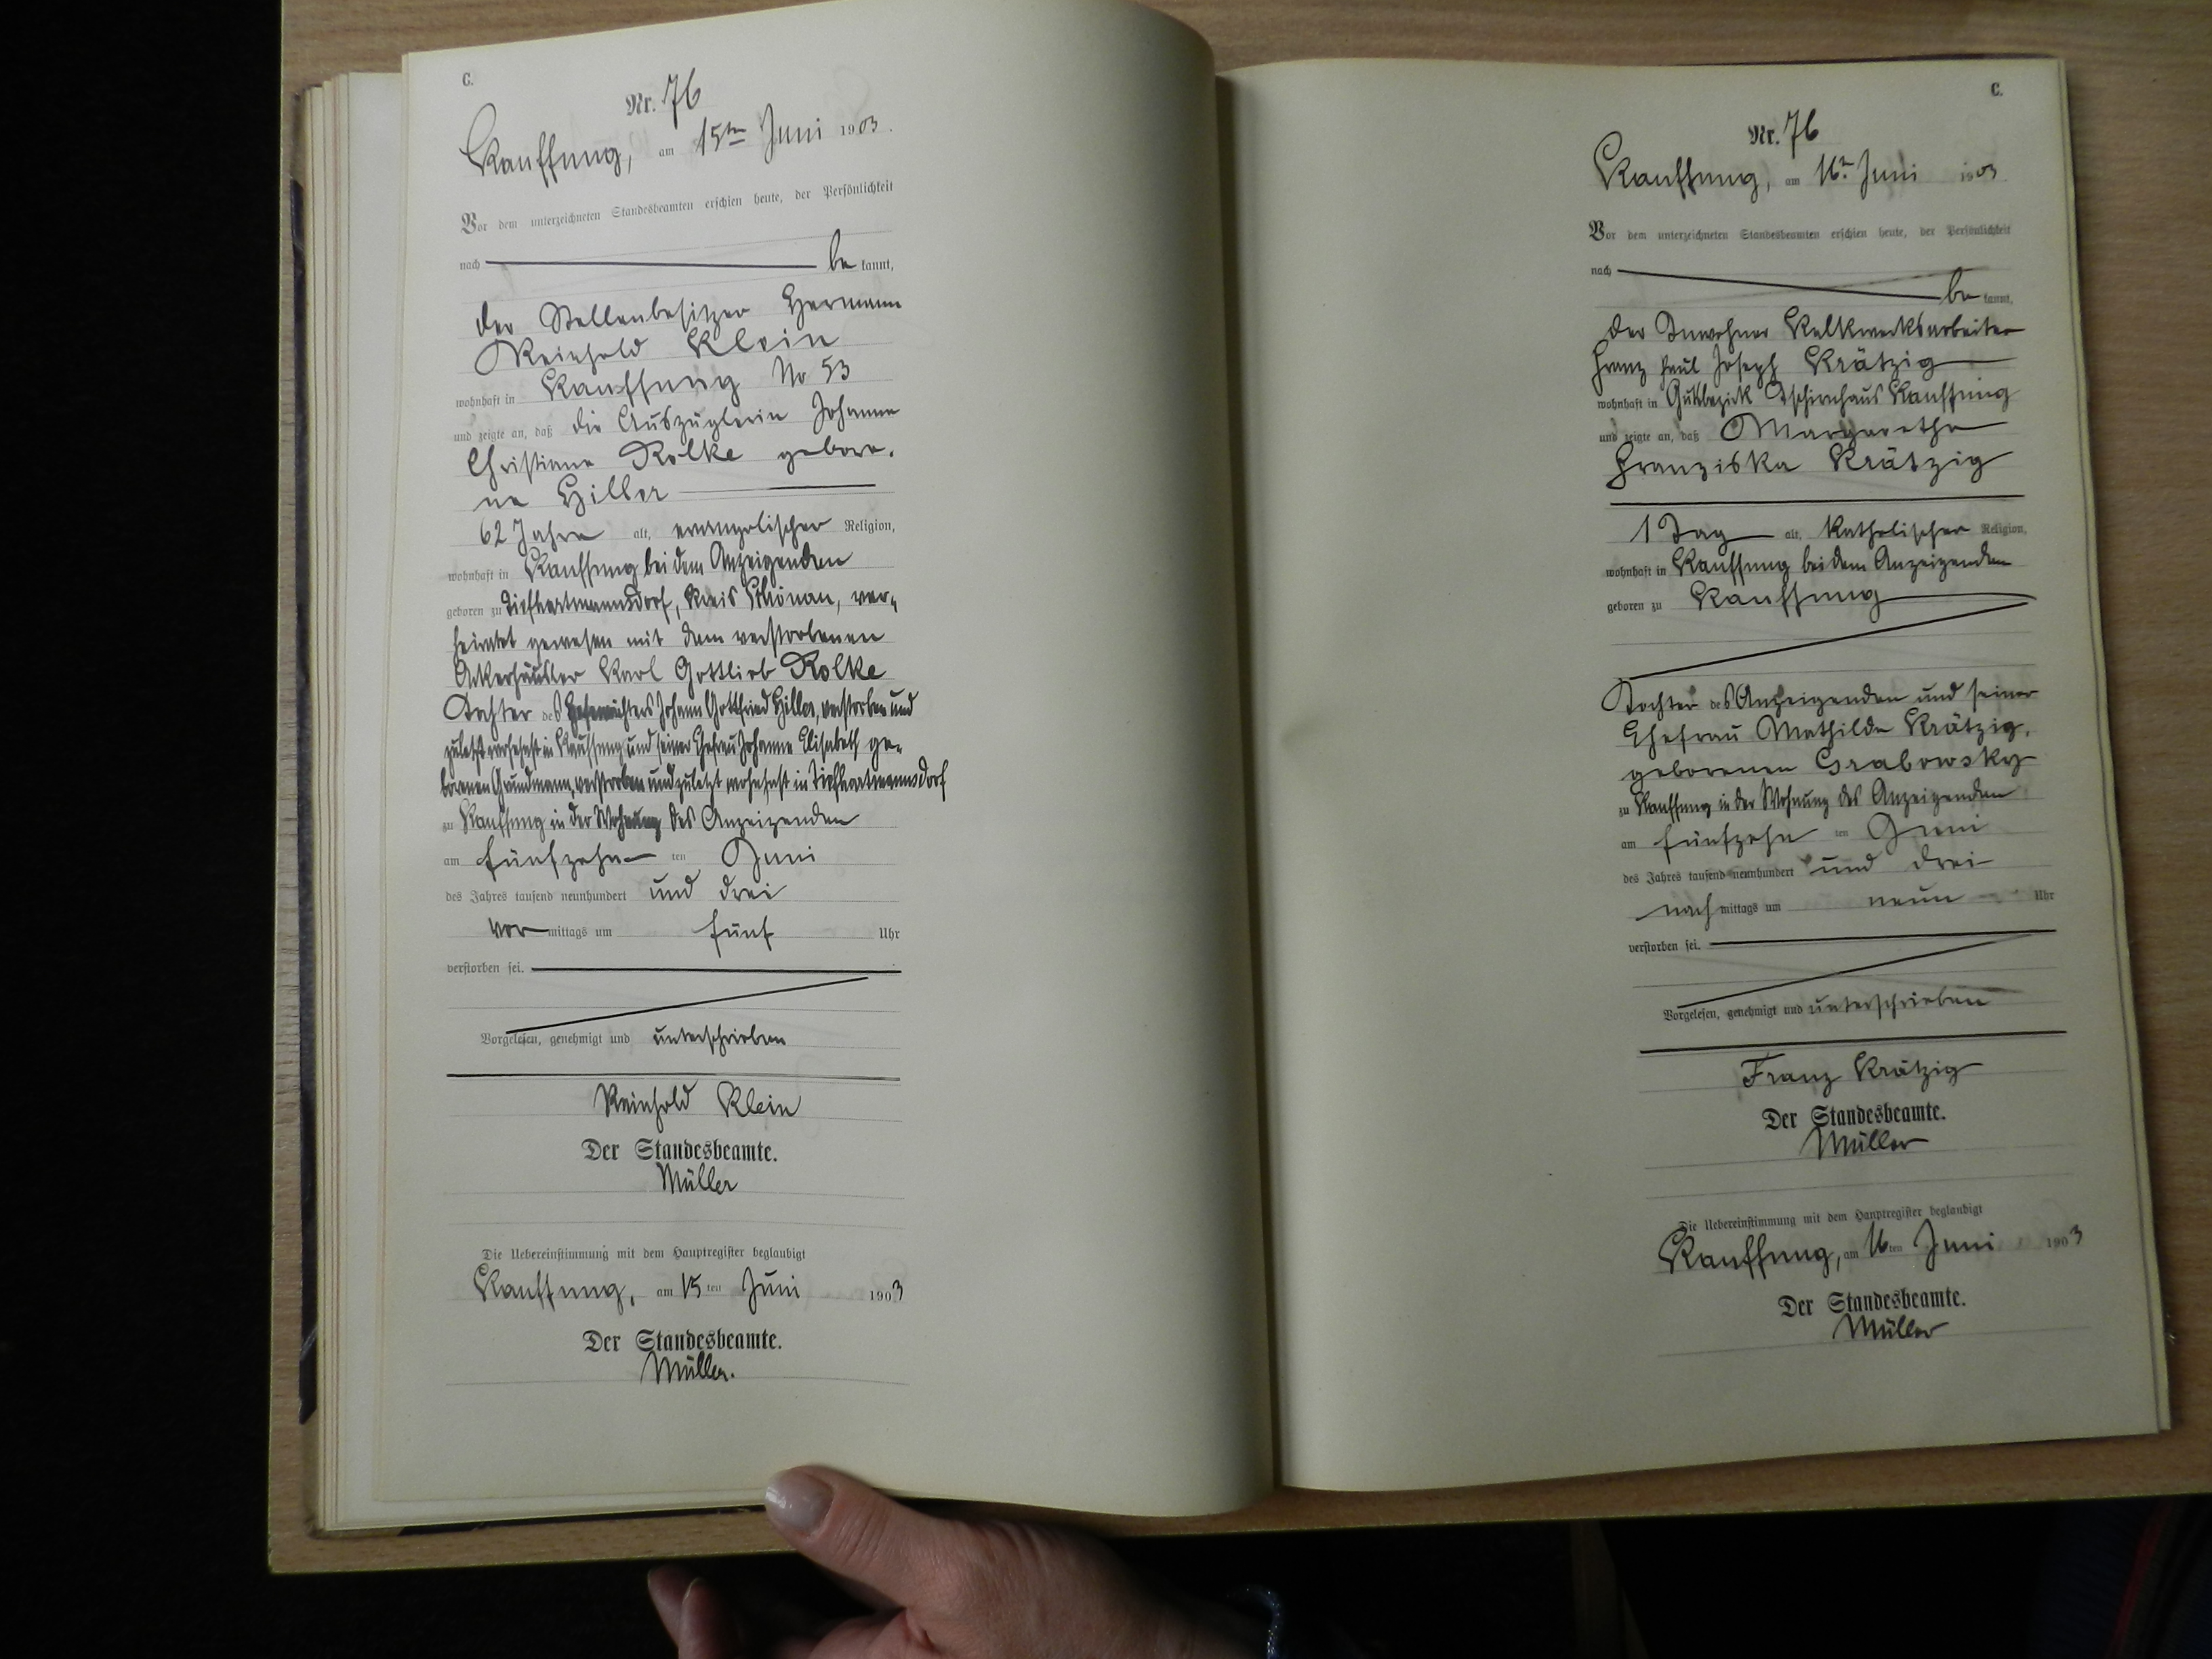 C.
Nr. 76
Kauffung, am 15ten Juni 1903.
Vor dem unterzeichneten Standesbeamten erschien heute, der Persönlichkeit
nach be kannt,
der Stellenbesitzer Hermann
Reinhold Klein
wohnhaft in Kauffung No 53
und zeigte an, daß die Auszüglerin Johanne
Christiane Rolke gebore.
ne Hiller
62 Jahre alt, evangelischer Religion,
wohnhaft in Kauffung bei dem Anzeigenden
geboren zu Tiefhartmannsdorf, Kreis Schönau, ver-
heiratet gewesen mit dem verstorbenen
Ackerhäusler Karl Gottlieb Rolke
Tochter des Johann Gottfried Hiller, verstorben und
zuletzt wohnhaft in Kauffung und seiner Ehefrau Johanne Elisabeth ge-
borenen Grundmann, verstorben und zuletzt wohnhaft in Tiefhartmannsdorf
zu Kauffung in der Wohnung des Anzeigenden
am fünfzehn ten Juni
des Jahres tausend neunhundert und drei
vor mittags um fünf Uhr
verstorben sei.
Vorgelesen, genehmigt und unterschrieben
Reinhold Klein
Der Standesbeamte.
Müller
Die Uebereinstimmung mit dem Hauptregister beglaubigt
Kauffung, am 15 ten Juni 1903
Der Standesbeamte.
Müller.
C.
Nr. 76
Kauffung, am 16n Juni 1903
Vor dem unterzeichneten Standesbeamten erschien heute, der Persönlichkeit
nach be kannt,
der Inwohner Kalkwerksarbeiter
Franz Paul Joseph Krätzig
wohnhaft in Gutsbezirk Tschirnhaus Kauffung
und zeigte an, daß Margarethe
Franziska Krätzig
1 Tag alt, katholischer Religion,
wohnhaft in Kauffung bei dem Anzeigenden
geboren zu Kauffung
Tochter des Anzeigenden und seiner
Ehefrau Mathilde Krätzig,
geborenen Grabowsky
zu Kauffung in der Wohnung des Anzeigenden
am fünfzehn ten Juni
des Jahres tausend neunhundert und drei
nach mittags um neun Uhr
verstorben sei.
Vorgelesen, genehmigt und unterschrieben
Franz Krätzig
Der Standesbeamte.
Müller
Die Uebereinstimmung mit dem Hauptregister beglaubigt
Kauffung, am 16 ten Juni 1903
Der Standesbeamte.
Müller